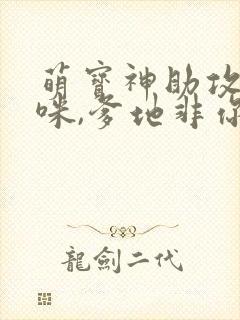 萌寳神助攻
咪,爹地非你
龍劍二代